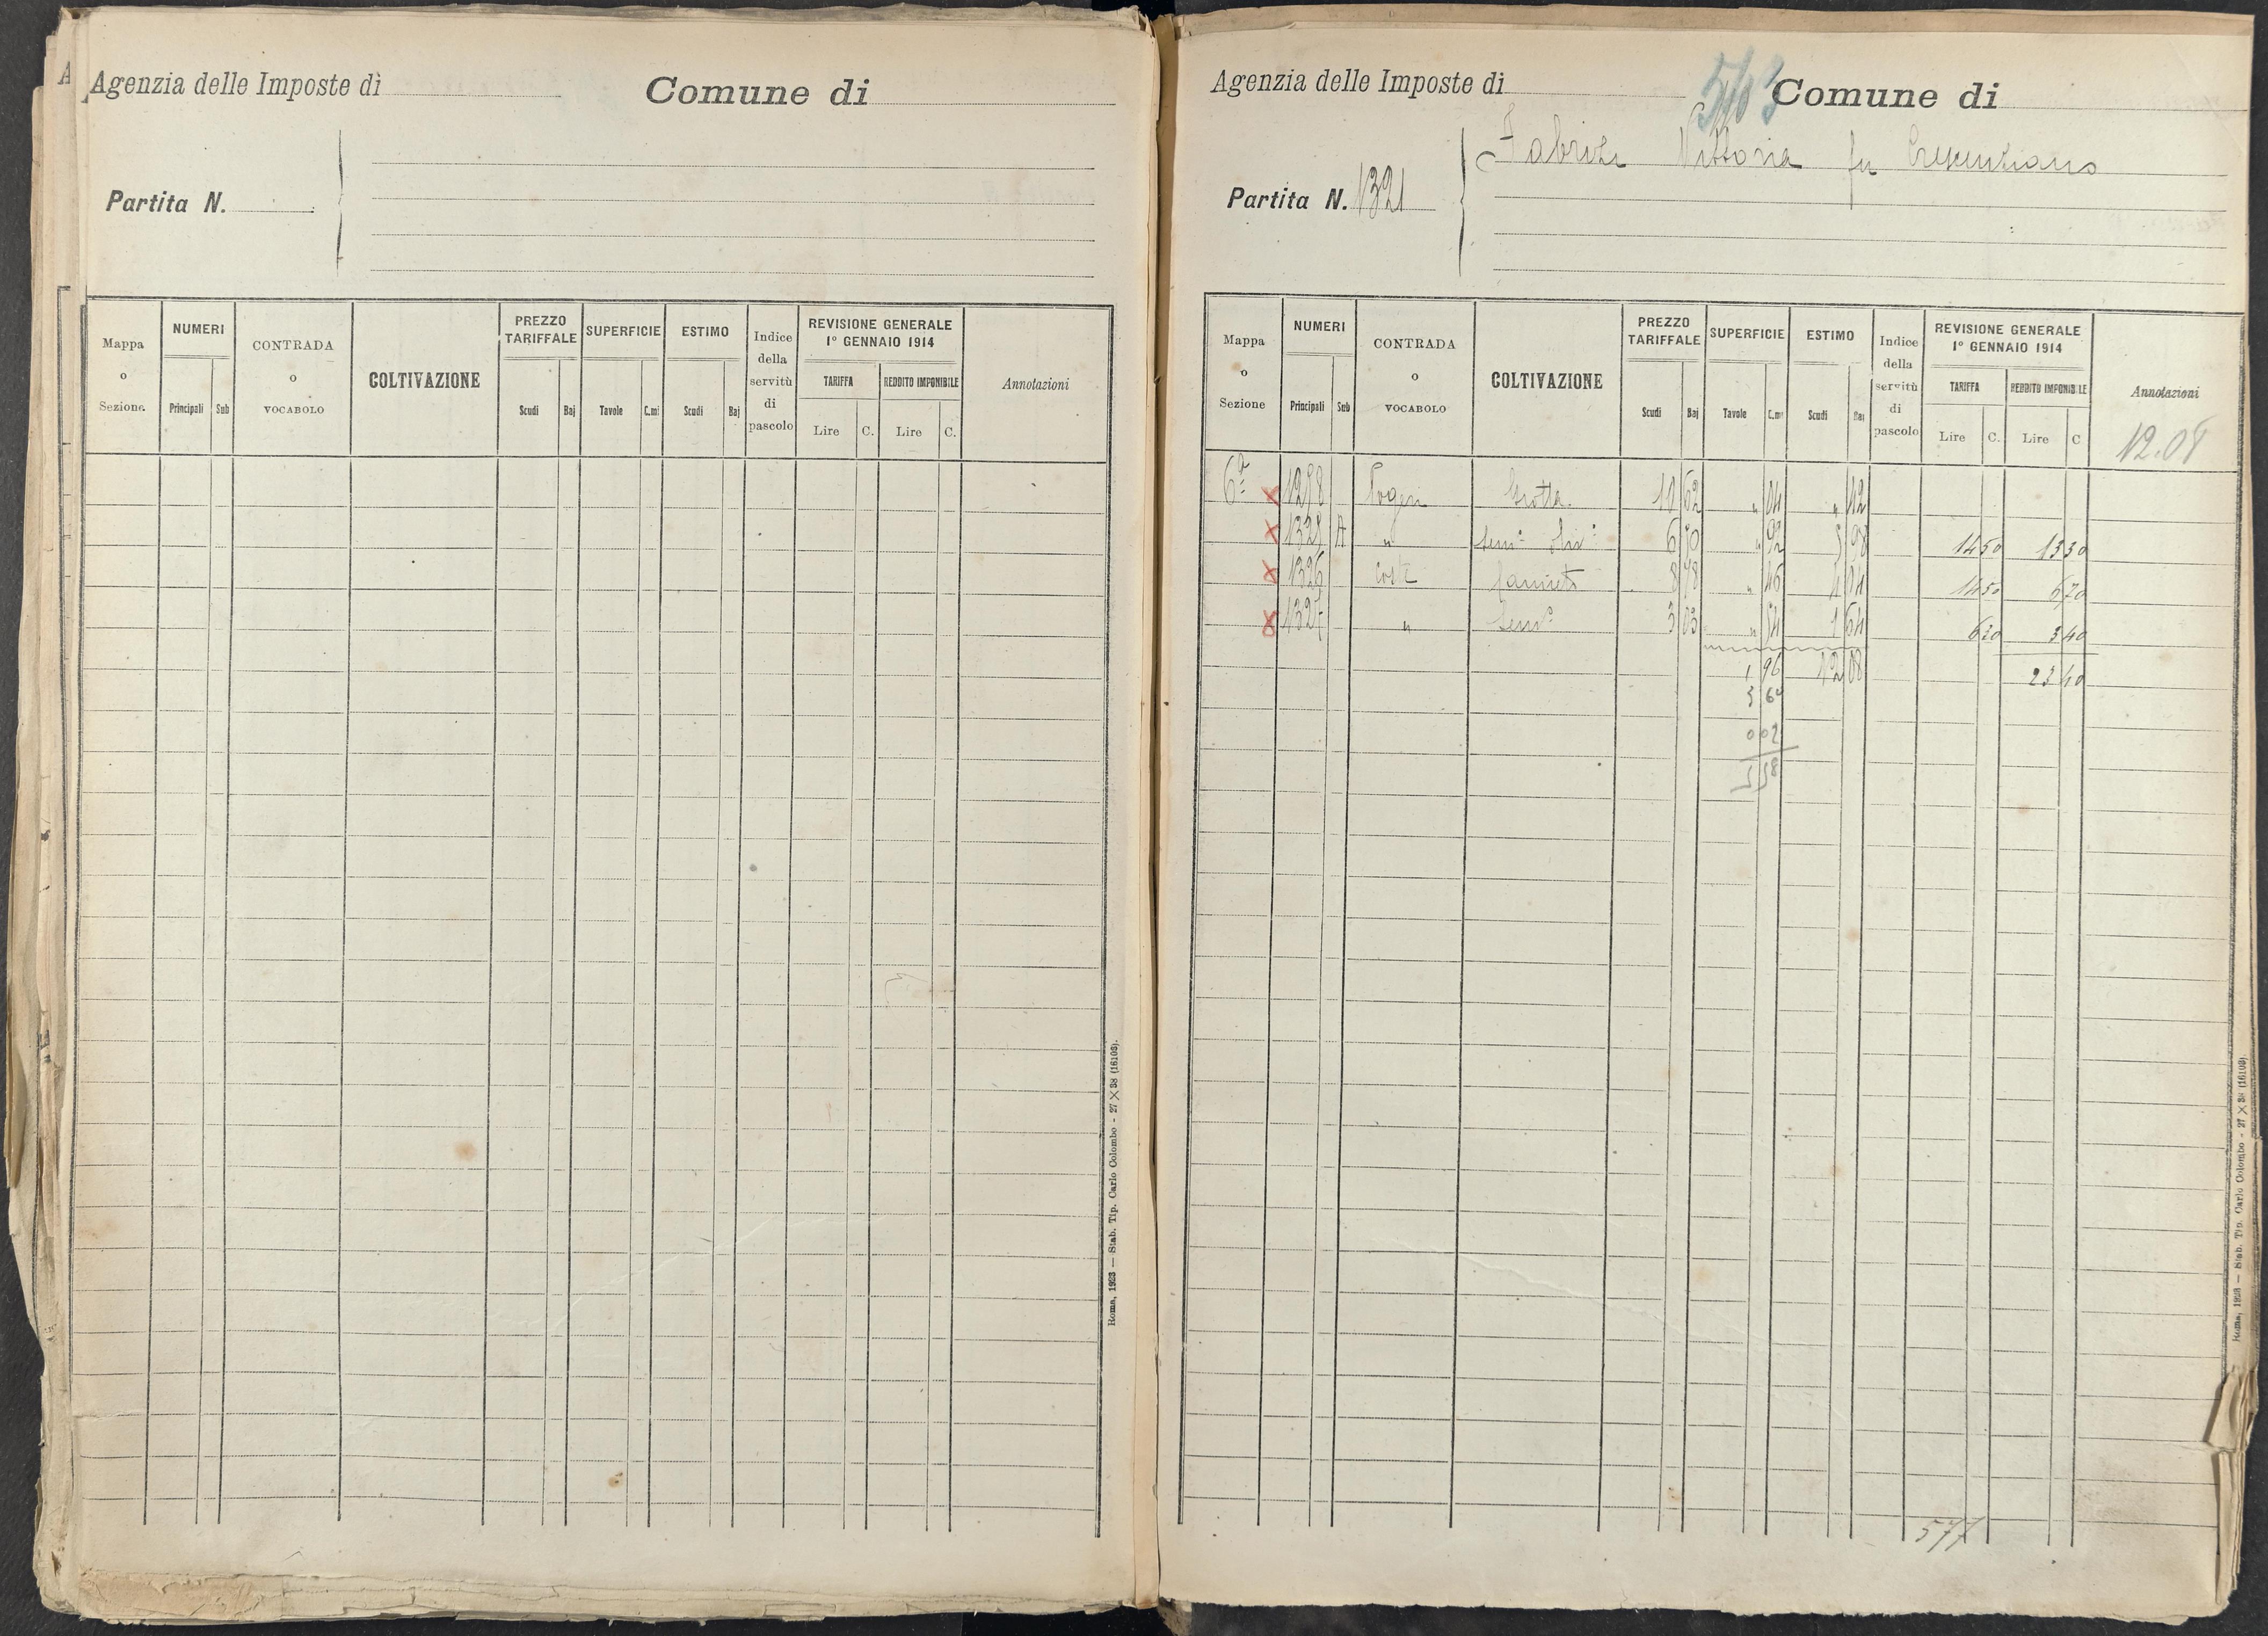 A
Agenzia delle Imposte di
Comune di
Partita N.
Mappa o Sezione
NUMERI
Principali
Sub
CONTRADA o VOCABOLO
COLTIVAZIONE
PREZZO TARIFFALE
Scudi
Baj
SUPERFICIE
Tavole
C.mi
ESTIMO
Scudi
Baj
Indice della servitù di pascolo
REVISIONE GENERALE
1° GENNAIO 1914
TARIFFA
REDDITO IMPONIBILE
Lire
C.
Lire
C.
Annotazioni
Roma, 1923 — Stab. Tip. Carlo Colombo - 27 X 38 (16103).
Agenzia delle Imposte di
Comune di
Fabrizi Vittoria fu Crescenziano
Partita N. 1321
Mappa o Sezione
NUMERI
Principali
Sub
CONTRADA o VOCABOLO
COLTIVAZIONE
PREZZO TARIFFALE
Scudi
Baj
SUPERFICIE
Tavole
C.mi
ESTIMO
Scudi
Baj
Indice della servitù di pascolo
REVISIONE GENERALE
1° GENNAIO 1914
TARIFFA
REDDITO IMPONIBILE
Lire
C.
Lire
C
Annotazioni
12.08
6ª x 1298 Grotta. 10 62 " 04 " 42
x A " Sem° Oliv° 6 50 " 92 5 98 14 50 13 30
x 1326 Coste 8 78 " 46 4 04 14 50 6 70
x 1327 " Sem° 3 03 " 54 1 64 6 20 3 40
1 96 12 08 23 40
002
577
Roma, 1923 — Stab. Tip. Carlo Colombo - 27 X 38 (16103).